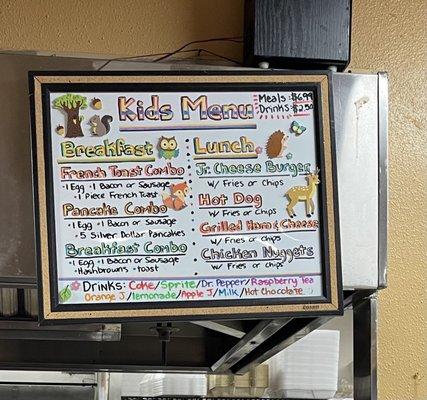 Kids Menu
Meals: $6.99
Drinks: $2.50
Breakfast
French Toast Combo
•1 Egg •1 Bacon or Sausage
•1 Piece French Toast
Pancake Combo
•1 Egg •1 Bacon or Sausage
•5 Silver Dollar Pancakes
Breakfast Combo
•1 Egg •1 Bacon or Sausage
•Hashbrowns •Toast
Lunch
Jr. Cheese Burger
W/ Fries or Chips
Hot Dog
W/ Fries or Chips
Grilled Ham & Cheese
W/ Fries or Chips
Chicken Nuggets
W/ Fries or Chips
Drinks: Coke/Sprite/Dr. Pepper/Raspberry Tea
Orange J/lemonade/Apple J/Milk/Hot Chocolate